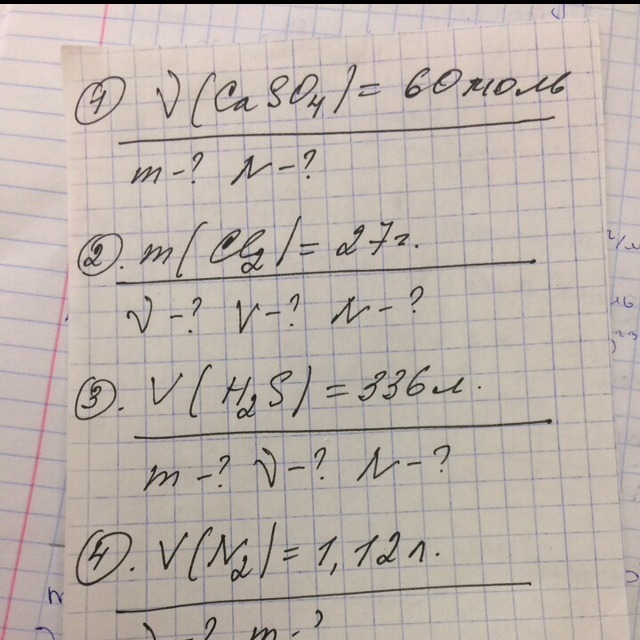 1 ν(CaSO4) = 60 моль
m - ? N - ?
2. m(Cl2) = 27г.
ν - ? V - ? N - ?
3. V(H2S) = 336 л.
m - ? ν - ? N - ?
4. V(N2) = 1,12 л.
ν - ? m - ?